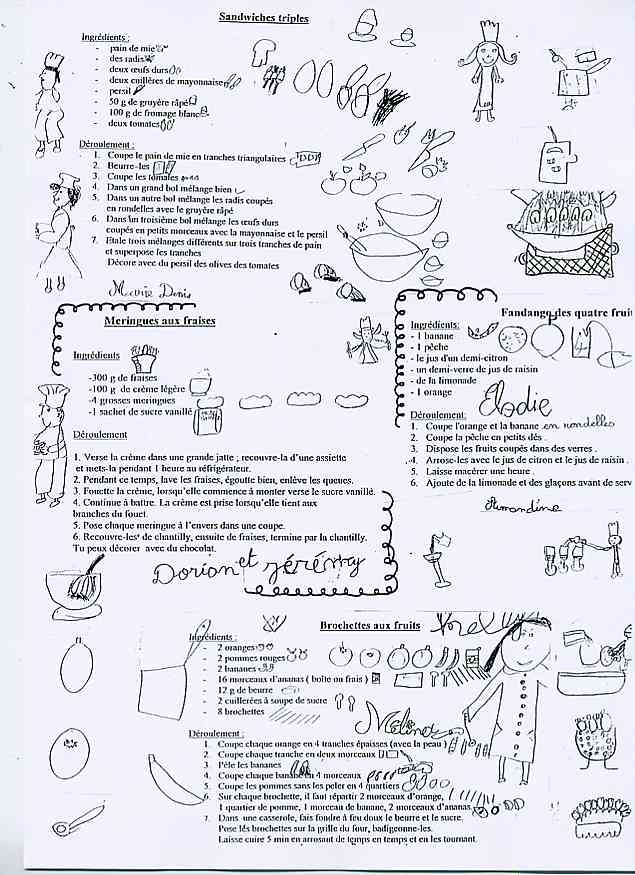 Sandwiches triples
Ingrédients :
- pain de mie
- des radis
- deux œufs durs
- deux cuillères de mayonnaise
- persil
- 50 g de gruyère râpé
- 100 g de fromage blanc
- deux tomates
Déroulement :
1. Coupe le pain de mie en tranches triangulaires
2. Beurre-les
3. Coupe les tomates
4. Dans un grand bol mélange bien
5. Dans un autre bol mélange les radis coupés
en rondelles avec le gruyère râpé
6. Dans un troisième bol mélange les œufs durs
coupés en petits morceaux avec la mayonnaise et le persil
7. Etale trois mélanges différents sur trois tranches de pain
et superpose les tranches
Décore avec du persil des olives des tomates
Denis
Meringues aux fraises
Ingrédients
-300 g de fraises
-100 g de crème légère
-4 grosses meringues
-1 sachet de sucre vanillé
Déroulement
1. Verse la crème dans une grande jatte ; recouvre-la d'une assiette
et mets-la pendant 1 heure au réfrigérateur.
2. Pendant ce temps, lave les fraises, égoutte bien, enlève les queues.
3. Fouette la crème, lorsqu'elle commence à monter verse le sucre vanillé.
4. Continue à battre. La crème est prise lorsqu'elle tient aux
branches du fouet.
5. Pose chaque meringue à l'envers dans une coupe.
6. Recouvre-les de chantilly, ensuite de fraises, termine par la chantilly.
Tu peux décorer avec du chocolat.
Dorian et Jérémy
Fandango des quatre fruit
Ingrédients:
- 1 banane
- 1 pêche
- le jus d'un demi-citron
- un demi-verre de jus de raisin
- de la limonade
- 1 orange
Elodie
Déroulement:
1. Coupe l'orange et la banane en rondelles
2. Coupe la pêche en petits dés .
3. Dispose les fruits coupés dans des verres .
4. Arrose-les avec le jus de citron et le jus de raisin .
5. Laisse macérer une heure .
6. Ajoute de la limonade et des glaçons avant de serv
Amandine
Brochettes aux fruits
Ingrédients :
- 2 oranges
- 2 pommes rouges
- 2 bananes
- 16 morceaux d'ananas ( boîte ou frais )
- 12 g de beurre
- 2 cuillerées à soupe de sucre
- 8 brochettes
Déroulement :
1. Coupe chaque orange en 4 tranches épaisses (avec la peau )
2. Coupe chaque tranche en deux morceaux
3. Pèle les bananes
4. Coupe chaque banane en 4 morceaux
5. Coupe les pommes sans les peler en 4 quartiers
6. Sur chaque brochette, il faut répartir 2 morceaux d'orange,
1 quartier de pomme, 1 morceau de banane, 2 morceaux d'ananas
7. Dans une casserole, fais fondre à feu doux le beurre et le sucre.
Pose les brochettes sur la grille du four, badigeonne-les.
Laisse cuire 5 min en arrosant de temps en temps et en les tournant.